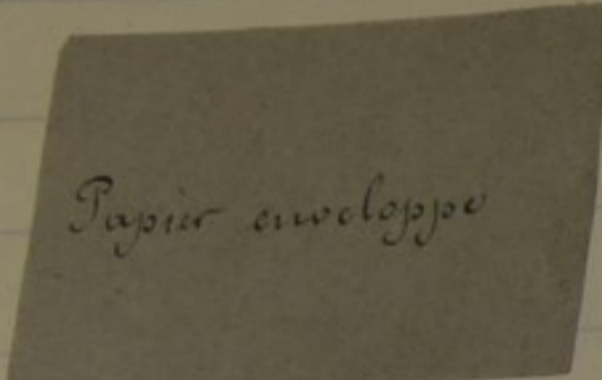 Papier enveloppe